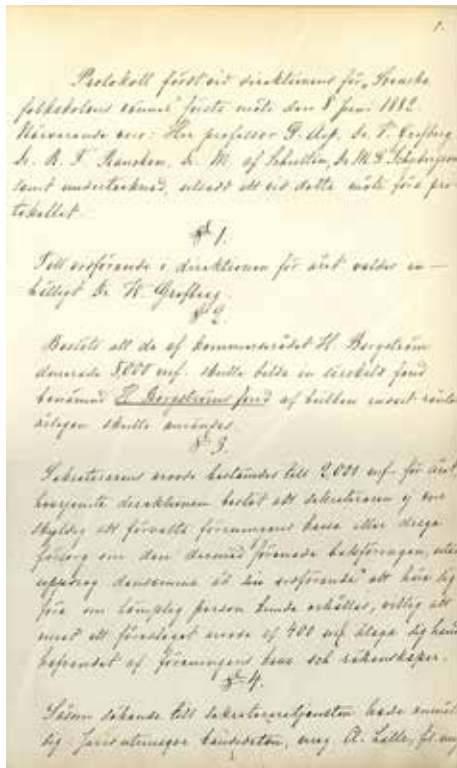 1.
Protokoll fördt vid direktionens för „Svenska
folkskolans vänner" första möte den 8 Juni 1882.
Närvarande voro: Herr professor
dr. R. F. dr. M. af Schultén, dr M. G.
samt undertecknad, utsedd att vid detta möte föra pro-
tokollet.
§ 1.
Till ordförande i direktionen för året valdes en-
hälligt dr W.
§ 2.
Beslöts att de af kommerserådet H Borgström
donerade 5,000 mf. skulle bilda en särskild fond
benämnd H Borgströms fond af hvilken endast
årligen skulle användas
§ 3.
Sekreterarens arvode bestämdes till 2,000 mf. för året,
hvarjemte direktionen beslöt att sekreteraren ej vore
skyldig att förvalta föreningens kassa eller draga
försorg om den dermed förenade bokföringen, utan
uppdrog densamma åt sin ordförande att höra sig
före om lämplig person kunde erhållas, villig att
emot ett föreslaget arvode af 400 mf. åtaga sig
befattandet af föreningens kassa och räkenskaper.
§ 4.
Såsom sökande till sekreteraretjensten hade anmält
sig kandidaten, mag. A. Lille, fil. mag